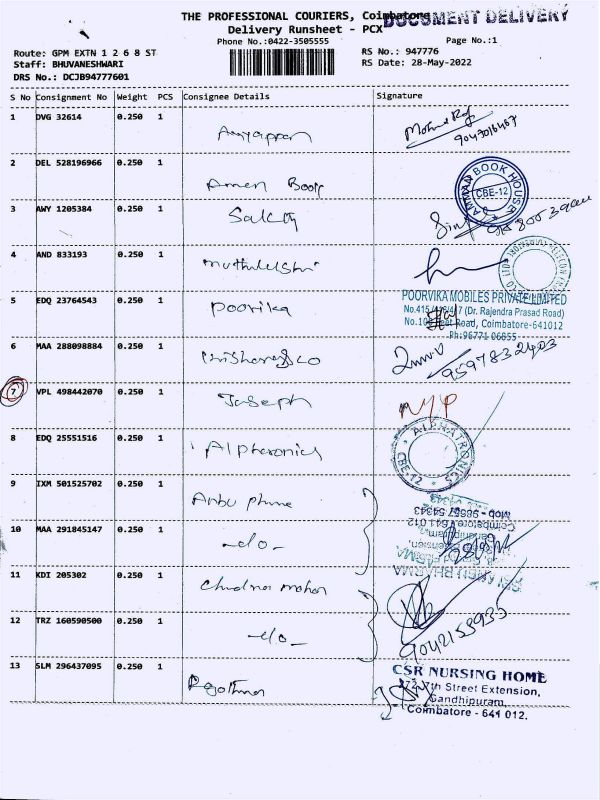 THE PROFESSIONAL COURIERS, Coimbatore
DOCUMENT DELIVERY
Delivery Runsheet - PCX
Phone No.:0422-3505555
Page No.:1
Route: GPM EXTN 1 2 6 8 ST
RS No.: 947776
Staff: BHUVANESHWARI
RS Date: 28-May-2022
DRS No.: DCJB94777601
S No Consignment No Weight PCS Consignee Details Signature
1 DVG 32614 0.250 1 Ayyappan
2 DEL 528196966 0.250 1 Amman Book
AMMAN BOOK HOUSE CBE-12
3 AWY 1205384 0.250 1 Sakthi
4 AND 833193 0.250 1
5 EDQ 23764543 0.250 1 Poorvika
POORVIKA MOBILES PRIVATE LIMITED
(Dr. Rajendra Prasad Road)
Road, Coimbatore-641012
Ph:96771 06855
6 MAA 288098884 0.250 1
7 VPL 498442070 0.250 1 Joseph N/P
8 EDQ 25551516 0.250 1 Alphtronics
ALPHATRONICS CBE-12
9 IXM 501525702 0.250 1 Anbu phrme
10 MAA 291845147 0.250 1 -do-
Mob - 98657 54343
Coimbatore 641 012
Gandhipuram,
11 KDI 205302 0.250 1 Chndra mohan
12 TRZ 160590500 0.250 1 -do-
13 SLM 296437095 0.250 1
CSR NURSING HOME
7th Street Extension,
Gandhipuram,
Coimbatore - 641 012.